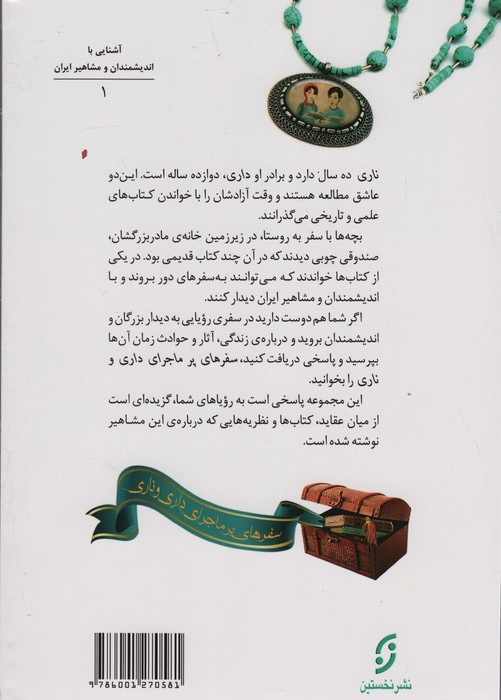 آشنایی با
اندیشمندان و مشاهیر ایران
۱
ناری ده سال دارد و برادر او داری، دوازده ساله است. این‌دو
عاشق مطالعه هستند و وقت آزادشان را با خواندن کتاب‌های
علمی و تاریخی می‌گذرانند.
بچه‌ها با سفر به روستا، در زیرزمین خانه‌ی مادربزرگشان،
صندوقی چوبی دیدند که در آن چند کتاب قدیمی بود. در یکی
از کتاب‌ها خواندند که می‌توانند به‌سفرهای دور بروند و با
اندیشمندان و مشاهیر ایران دیدار کنند.
اگر شما هم دوست دارید در سفری رؤیایی به دیدار بزرگان و
اندیشمندان بروید و درباره‌ی زندگی، آثار و حوادث زمان آن‌ها
بپرسید و پاسخی دریافت کنید، سفرهای پر ماجرای داری و
ناری را بخوانید.
این مجموعه پاسخی است به رؤیاهای شما، گزیده‌ای است
از میان عقاید، کتاب‌ها و نظریه‌هایی که درباره‌ی این مشاهیر
نوشته شده است.
سفرهای پرماجرای داری و ناری
9 786001 270581
نشر نخستین